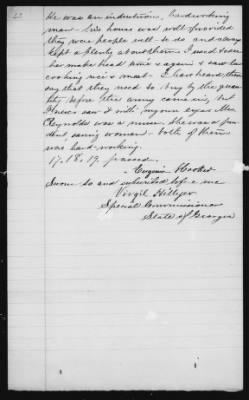 He was an industrious, hardworking
man - his house was well provided
they were people well to do and always
kept a plenty about them. I used to see
her make bread time & again & saw her
cooking rice & meat - I have heard them
say that they used to buy by the quan-
tity before the army came in, but
I never saw it with my own eyes. Mrs
Reynolds was a nurse. She was a pru-
dent saving woman - both of them
was hard-working.
17. 18. 19 passed
Eugenia Hooker
Sworn to and subscribed before me
Virgil Hillyer
Special Commissioner
State of Georgia